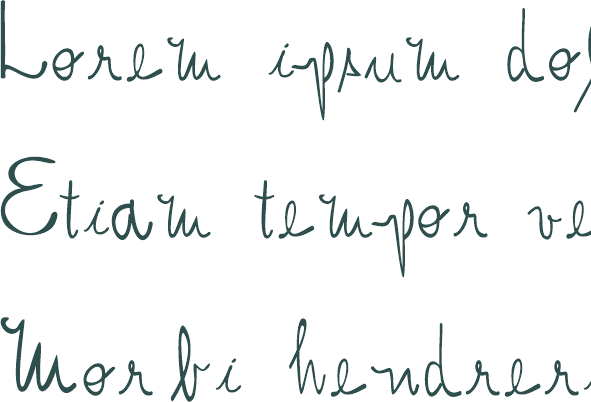 Lorem ipsum dol
Etiam tempor ve
Morbi hendrer